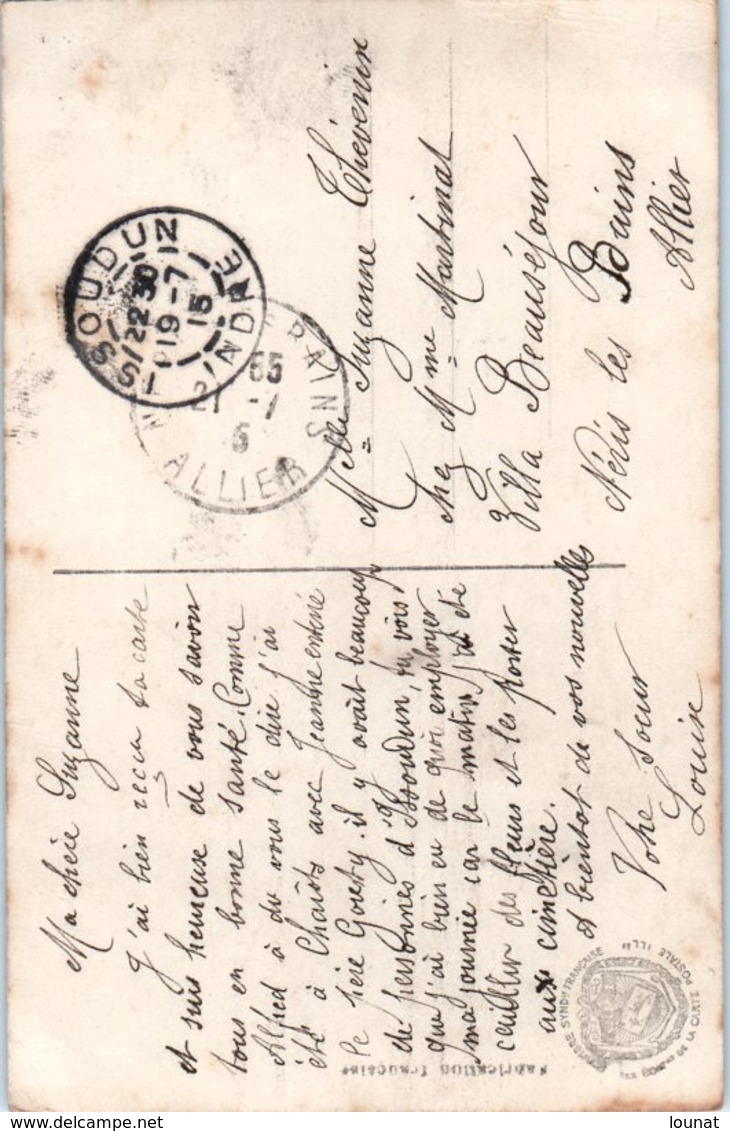 Ma chère Suzanne
J'ai bien reçu ta carte
et suis heureuse de vous savoir
tous en bonne santé. Comme
Alfred à du vous le dire j'ai
été à Chârost avec Jeanne enterré
le père Gousty. il y avait beaucoup
de personnes d'Issoudun, tu vois,
que j'ai bien eu de quoi employer
ma journée car le matin j'ai été
cueillir des fleurs et les porter
aux cimetière.
et bientot de vos nouvelles
Votre soeur
Louise
Melle Suzanne Thévenin
chez Mme Martinat
Villa Beauséjour
Néris les Bains
Allier
ISSOUDUN
22 30
19-7
15
INDRE
55
21 -7
ALLIER
Fabrication française
SYNDle FRANÇAISE
DE LA CARTE POSTALE ILLée
lounat